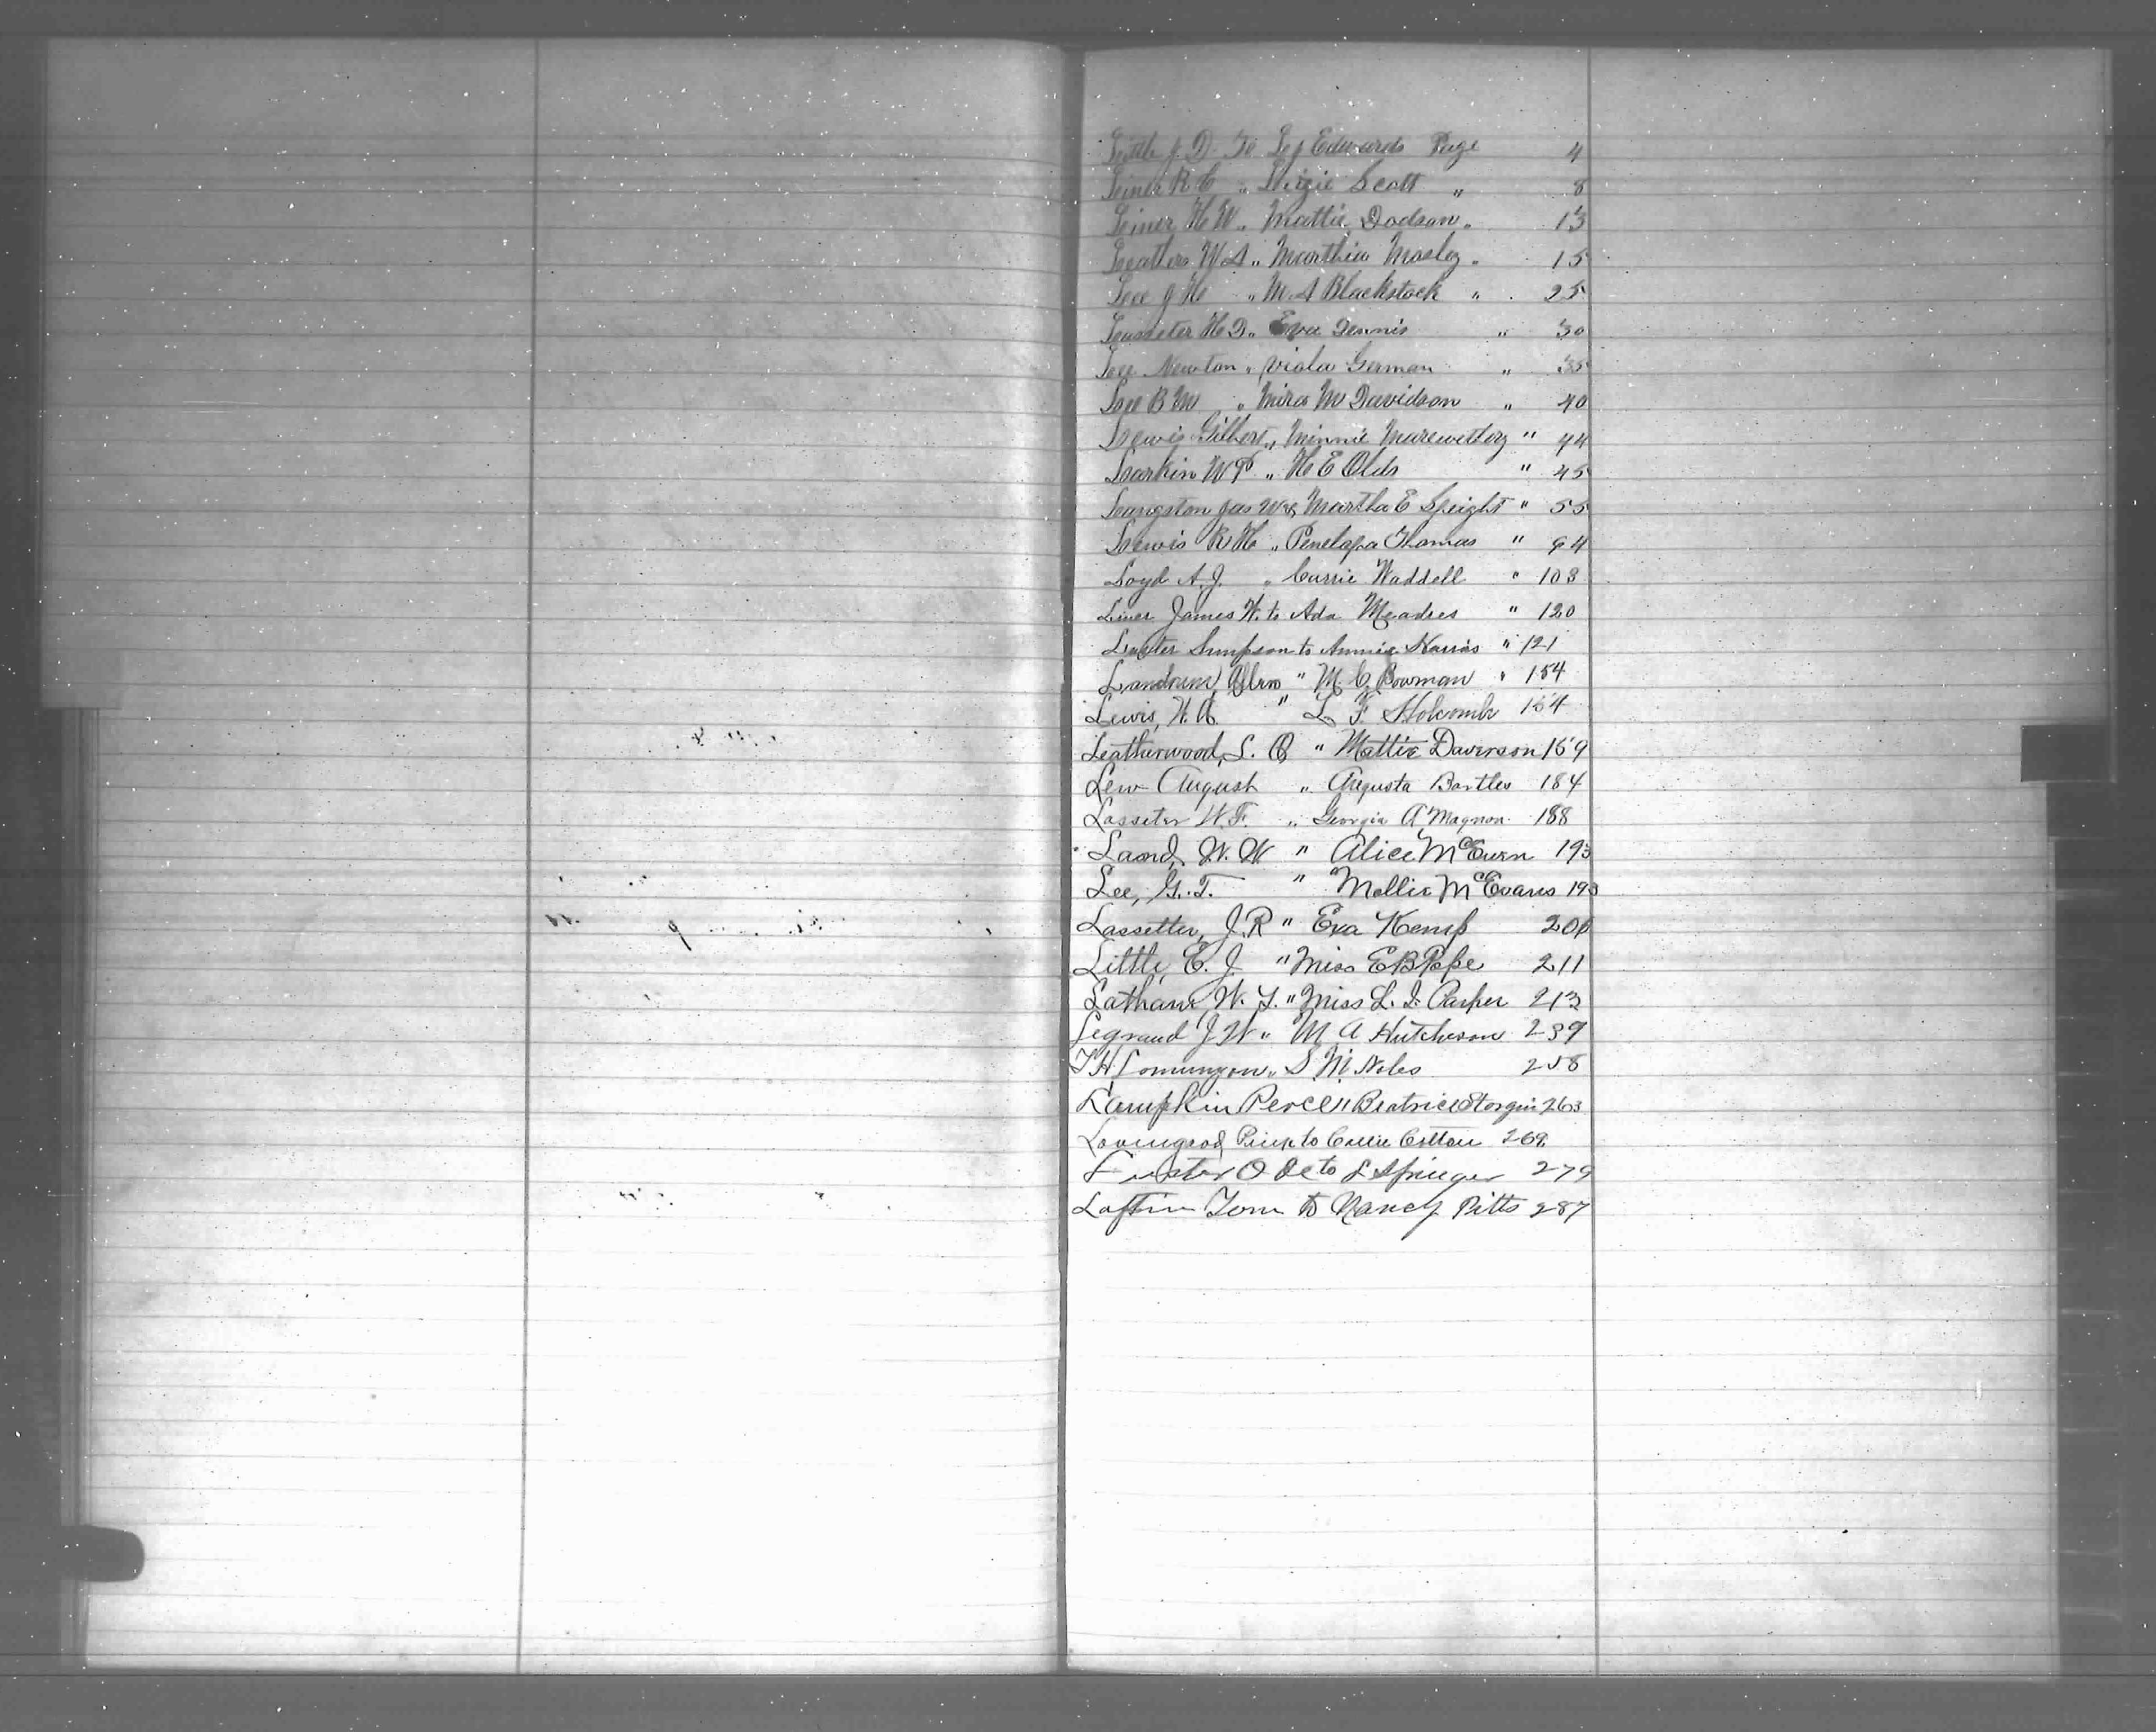 Little J. D. To L. J Edwards Page 4
Liner R C " Lizzie Scott " 8
Liner H W " Mattie Dodson " 13
Leathers W A " Marthia Mosley " 15
Lee J H " M. A Blackstock " 25
Lasseter H D " Eva Dennis " 30
Lee Newton " Viola German " 35
Lee B M " Mira M Davidson " 40
Lewis Gilbert " Minnie " 44
Larkin W P " H E Olds " 45
Langston Jas W " Martha E Speight " 55
Lewis R H " Penelapa Thomas " 94
Loyd A. J. " Carrie Waddell " 108
Liner James W. to Ada Meadres " 120
Luster Simpson to Annie Harris " 121
Landrum " M C Bowman " 154
Lewis, W. A. " L F Holcomb 154
Leatherwood, L. O " Mattie Daverson 159
Lew August " Augusta Bartles 184
Lasseter W. F. " Georgia A Magnon 188
Land, W. W " Alice McEwen 193
Lee, G. T. " Mollie McEvans 193
Lassetter, J. R " Eva Kemp 200
Little, E. J " Miss E B Pope 211
Latham W. L. " Miss L. I. Parker 213
Legrand J W " M A Hutcheson 239
T H " S M Noles 258
Lampkin Perce " Beatrice 263
Lovingood Pink to Callie Cotton 269
Luster O to L Springer 279
Loftin Tom to Nancy Pitts 287